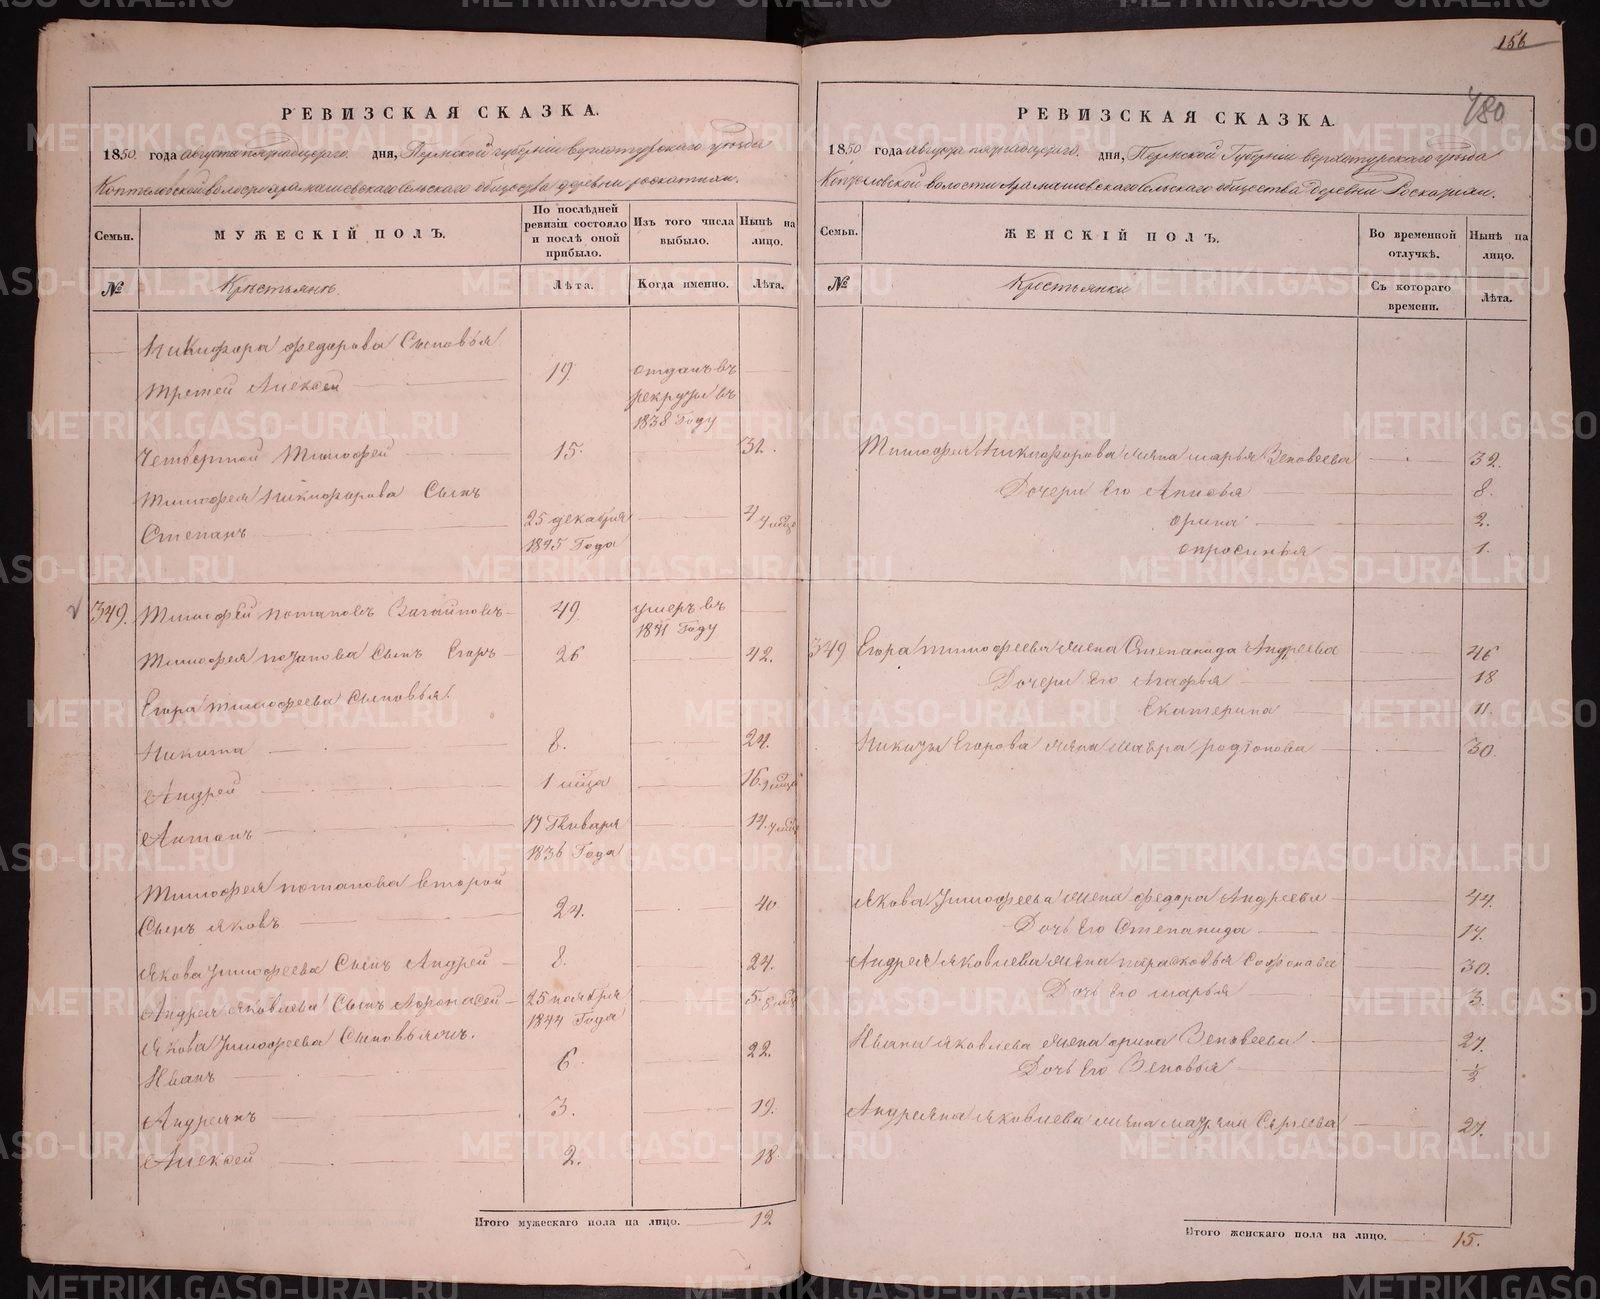 РЕВИЗСКАЯ СКАЗКА.
1850 года августа пятнадцатаго дня, Пермской губернии верхотурскаго уѣзда
Коптеловской волости арамашевскаго сельскаго общества деревни роскатихи.
Семьи.
МУЖЕСКІЙ ПОЛЪ.
По послѣдней ревизіи состояло и послѣ оной прибыло.
Изъ того числа выбыло.
Нынѣ на лицо.
№
Крестьянъ
Лѣта.
Когда именно.
Лѣта.
Никифора федорова Сыновья
третей Алексей 19 отданъ въ рекруты въ 1838 Году
Четвертой Тимофей 15. 31.
Тимофея Никифорова Сынъ
Степанъ 25 декабря 1845 Года 4
349. Тимофей потаповъ Вагановъ 49 умеръ въ 1841 Году
Тимофея потапова Сынъ Егоръ 26 42.
Егора тимофеева Сыновья
Никита 8. 24.
Андрей 1 мѣца 16.
Антонъ 17 Генваря 1836 Года 14.
Тимофея потапова второй
Сынъ яковъ 24. 40
Якова тимофеева Сынъ Андрей 8. 24.
Андрея яковлева Сынъ Афонасей 25 ноября 1844 Года 5.
Якова Тимофеева Сыновья
Иванъ 6. 22.
Андреянъ 3. 19.
Алексей 2. 18.
Итого мужескаго пола на лицо. 12
156
480
РЕВИЗСКАЯ СКАЗКА.
1850 года августа пятнадцатаго дня, Пермской Губернии верхотурскаго уѣзда
Коптеловской волости Арамашевскаго сельскаго общества деревни Роскатихи.
Семьи.
ЖЕНСКІЙ ПОЛЪ.
Во временной отлучкѣ.
Нынѣ на лицо.
№
Крестьянки
Съ котораго времени.
Лѣта.
Тимофея Никифорова жена марья Зеновеева 32.
Дочери Его Анисья 8.
орина 2.
опросинья 1.
349 Егора тимофеева жена Степанида Андреева 46
Дочери Его Агафья 18
Екатерина 11.
Никиты Егорова жена Мавра родионова 30.
Якова Тимофеева жена федора Андреева 44.
Дочь Его Степанида 17.
Андрея яковлева жена парасковья Софонова 30.
Дочь Его марья 3.
Ивана яковлева жена орина Зеновеева 27.
Дочь Его Зеновья 1/2
Андреяна яковлева жена матрена Сергеева 27.
Итого женскаго пола на лицо. 15.
METRIKI.GASO-URAL.RU